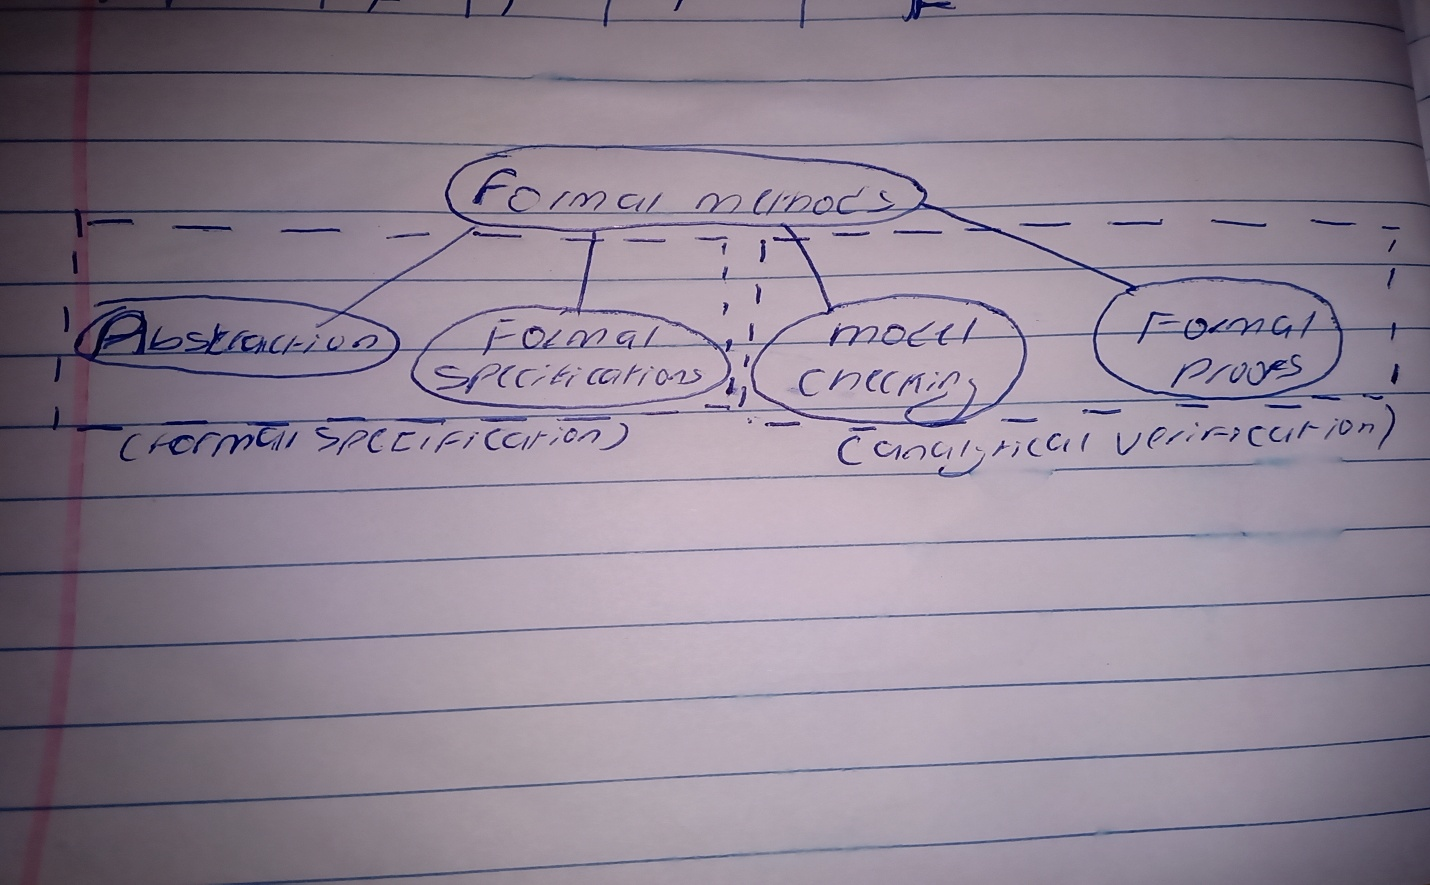 Formal methods
Abstraction
Formal
specifications
model
checking
Formal
Proofs
(Formal specification)
(analytical verification)